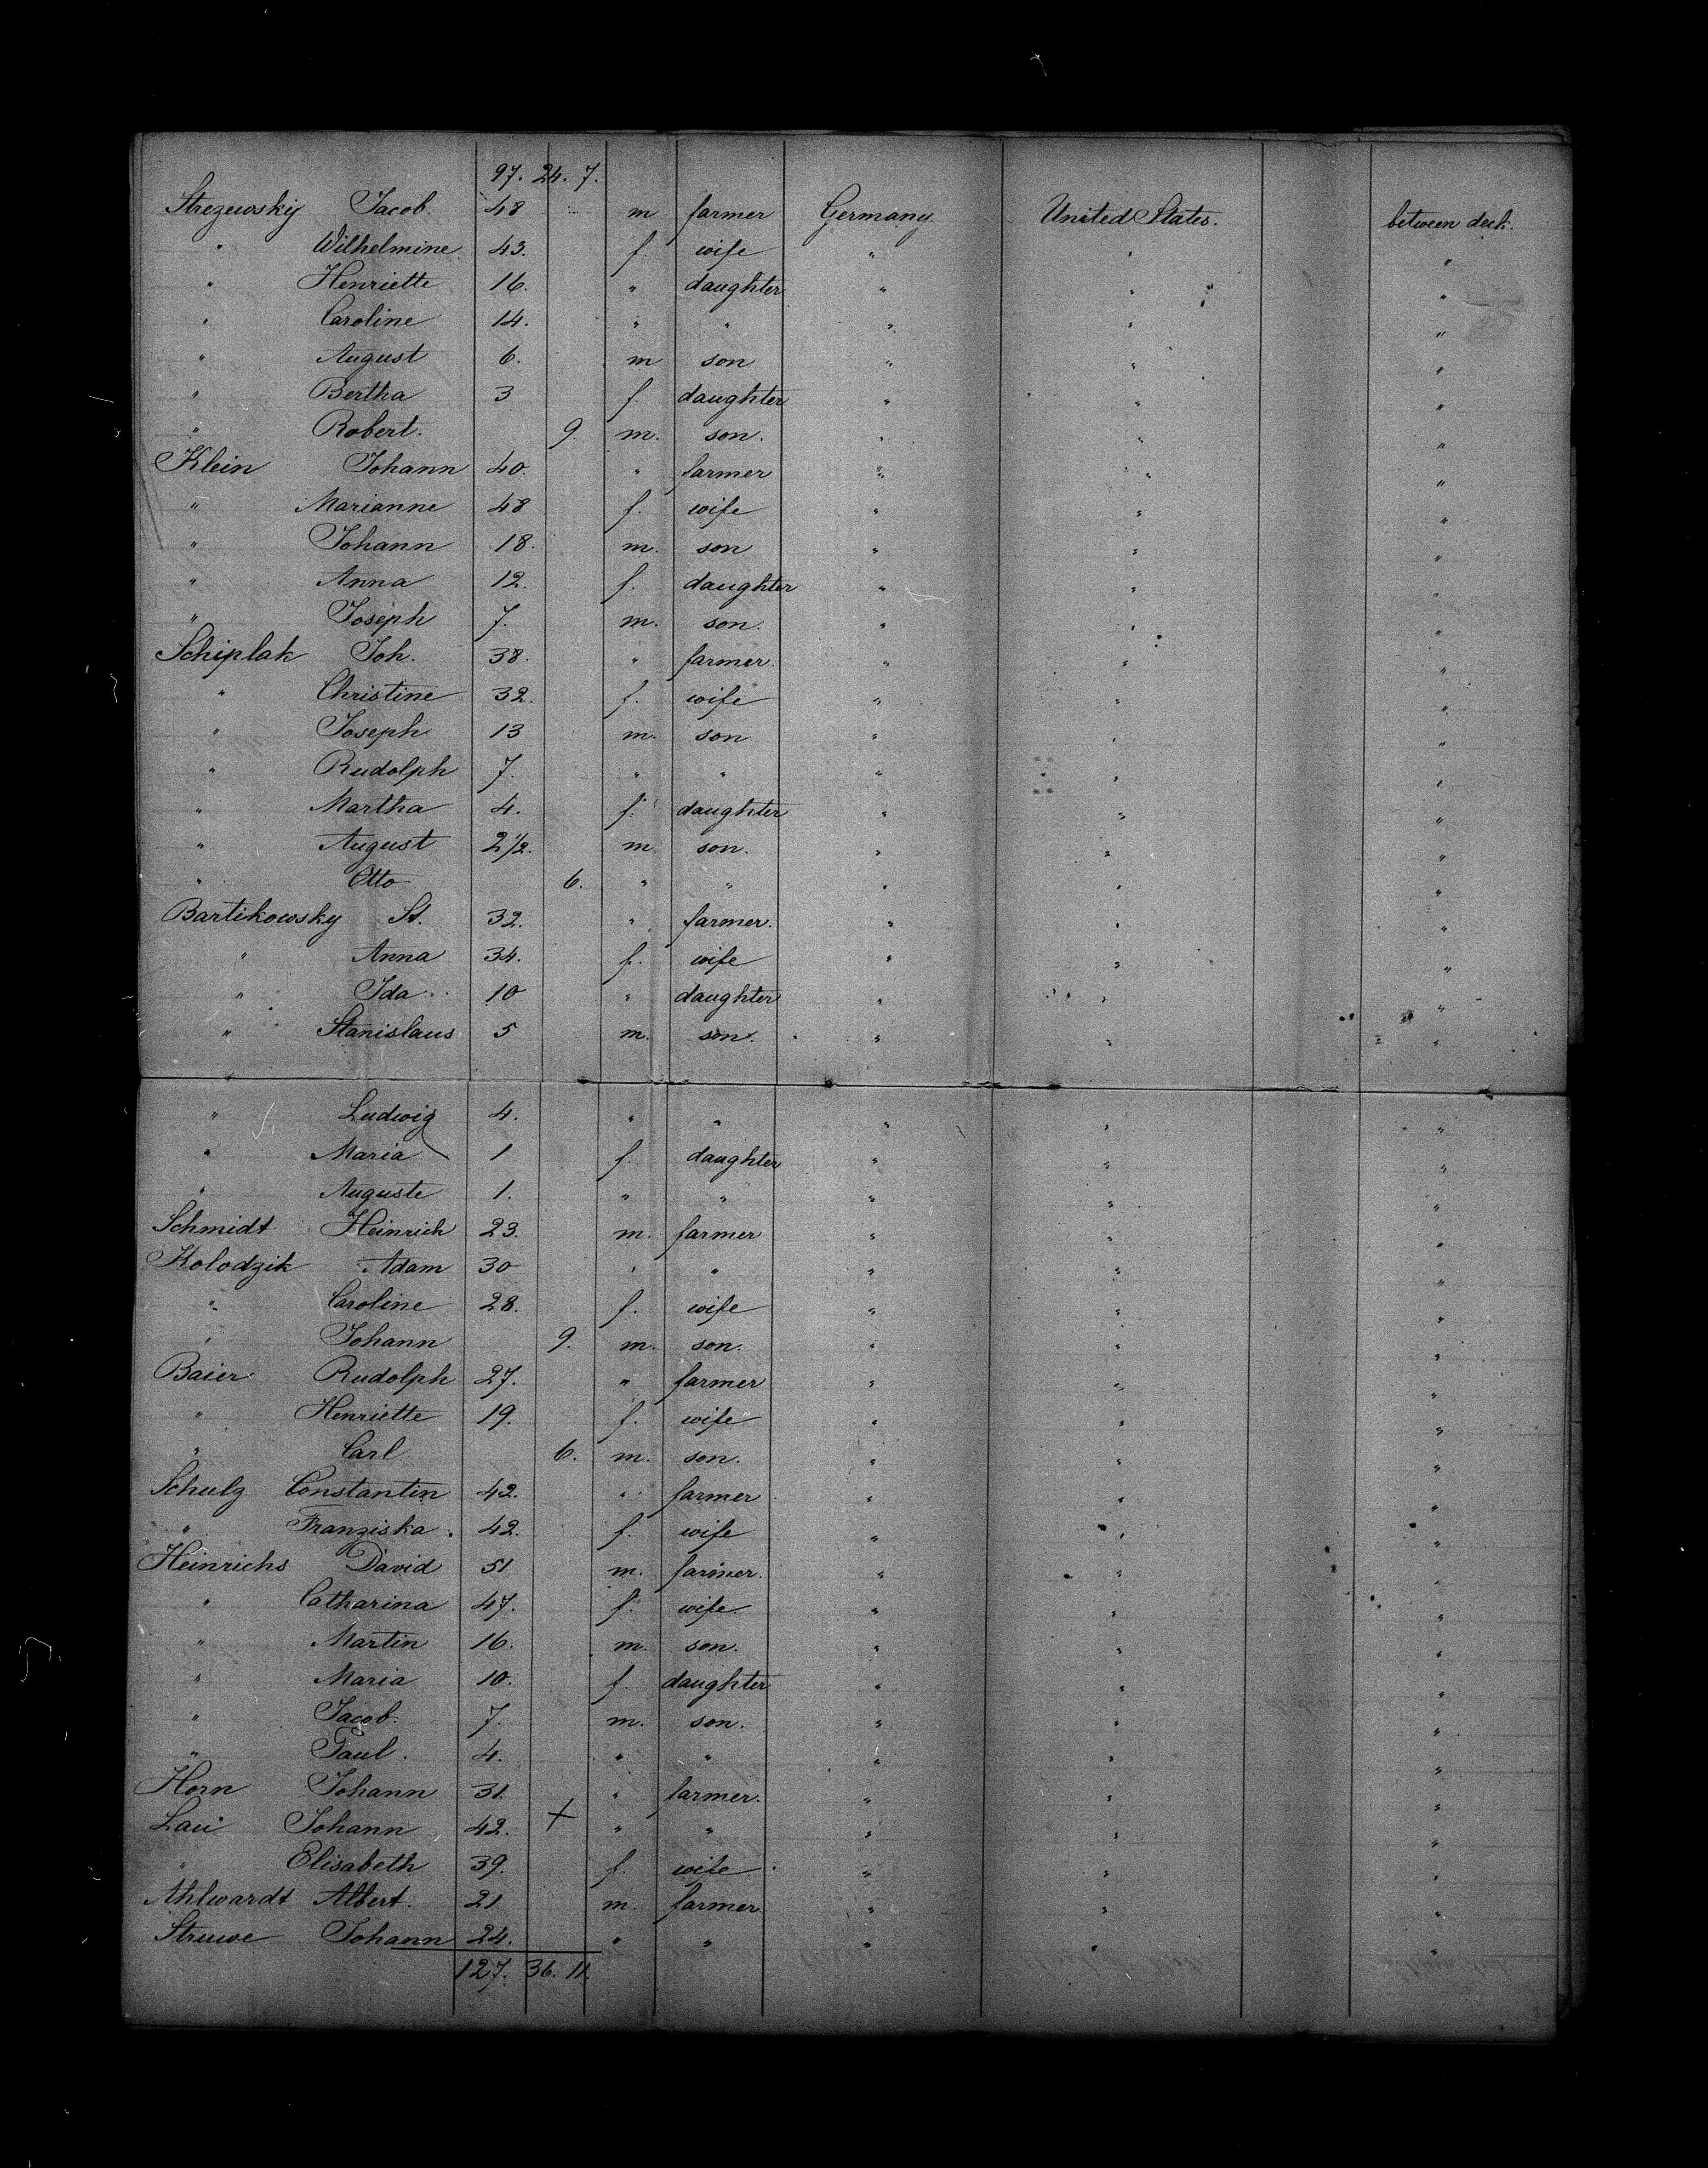 97. 24. 7.
Strezewsky Jacob. 48 m farmer Germany. United States. between deck.
" Wilhelmine 43. f. wife " " "
" Henriette 16. " daughter " " "
" Caroline 14. " " " " "
" August 6. m son " " "
" Bertha 3 f. daughter " " "
" Robert. 9. m. son. " " "
Klein Johann 40. " farmer " " "
" Marianne 48 f. wife " " "
" Johann 18. m. son " " "
" Anna 12. f. daughter " " "
" Joseph 7. m. son. " " "
Schiplak Joh. 38. " farmer. " " "
" Christine 32. f. wife " " "
" Joseph 13 m. son " " "
" Rudolph 7. " " " " "
" Martha 4. f. daughter " " "
" August 2 1/2. m. son. " " "
" Otto 6. " " " " "
Bartikowsky St. 32. " farmer. " " "
" Anna 34. f. wife " " "
" Ida 10 " daughter " " "
" Stanislaus 5 m. son. " " "
" Ludwig 4. " " " " "
" Maria 1 f. daughter " " "
" Auguste 1. " " " " "
Schmidt Heinrich 23. m. farmer " " "
Kolodzik Adam 30 " " " " "
" Caroline 28. f. wife " " "
" Johann 9. m. son. " " "
Baier Rudolph 27. " farmer " " "
" Henriette 19. f. wife " " "
" Carl 6. m. son. " " "
Schulz Constantin 42. " farmer " " "
" Franziska. 42. f. wife " " "
Heinrichs David 51 m. farmer. " " "
" Catharina 47. f. wife. " " "
" Martin 16. m. son. " " "
" Maria 10. f. daughter " " "
" Jacob. 7. m. son. " " "
" Paul. 4. " " " " "
Horn Johann 31. " farmer. " " "
Lau Johann 42. + " " " " "
" Elisabeth 39. f. wife " " "
Ahlwardt Albert. 21 m. farmer " " "
Struwe Johann 24. " " " " "
127. 36. 11.